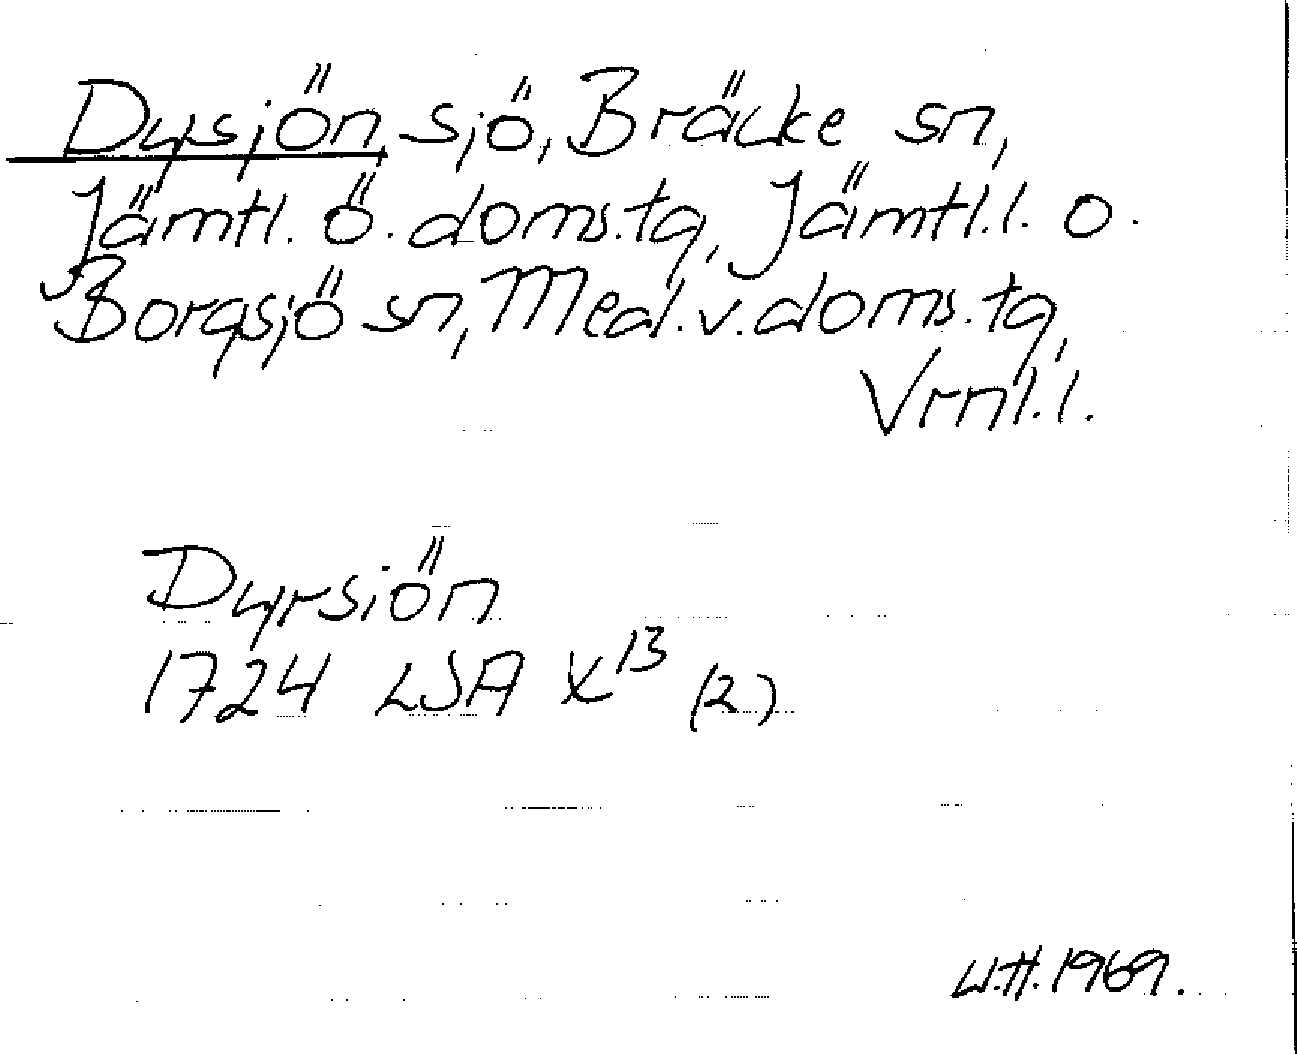 Dysjön, sjö, Bräcke sn,
Jämtl. ö. doms.tg, Jämtl.l. o.
Borgsjö sn, Med. v. doms.tg,
Vrnl.l.
Dyrsiön
1724 LSA X¹³ (2)
W.H. 1969.